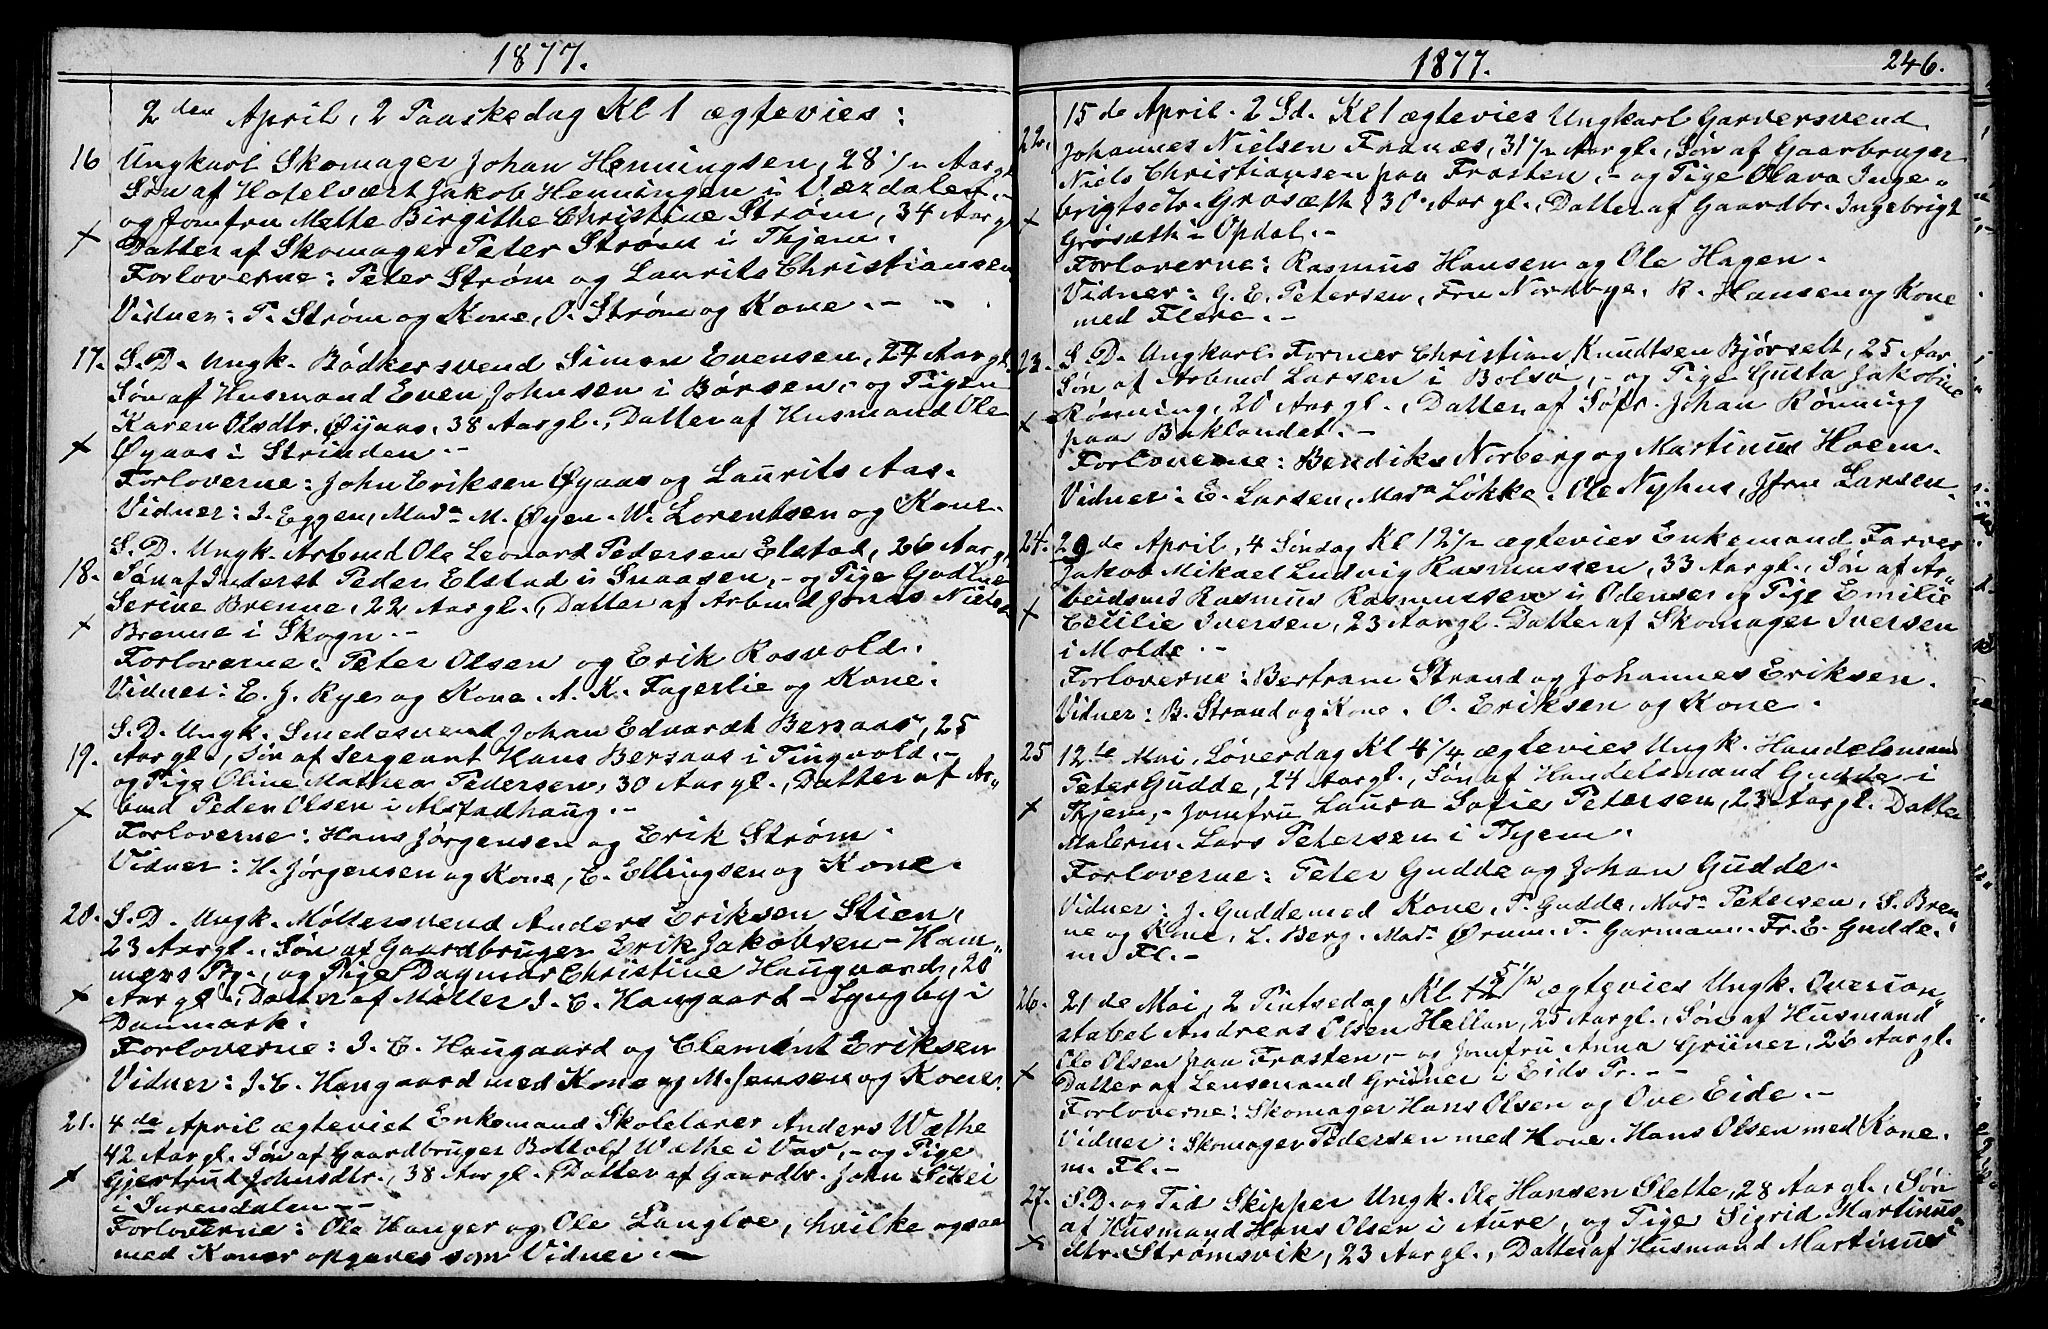 1877.
2den April, 2 Paaskedag Kl 1 ægtevies:
16 Ungkarl Skomager Johan Henningsen, 28 1/2 Aargl.
Søn af Hotelvært Jakob Henningen i Værdalen. -
og Jomfru Mette Birgithe Christine Strøm, 34 Aargl
Datter af Skomager Peter Strøm i Thjem.
Forloverne: Peter Strøm og Laurits Christiansen
Vidner: P. Strøm og Kone, O. Strøm og Kone. -
17. S.D. Ungk. Bødkersvend Simon Evensen, 27 Aargl.
Søn af Husmand Even Johnsen i Børsen, - og Pigen
Karen Olsdtr. Øyaas, 38 Aargl., Datter af Husmand Ole
Øyaas i Strinden. -
Forloverne: John Eriksen Øyaas og Laurits Aas.
Vidner: I. Eggen, Mada M. Øyen. W. Lorentsen og Kone.
S.D. Ungk. Arbmd Ole Leonard Pedersen Elstad, 26 Aargl,
18. Søn af Inderst Peder Elstad i Snaasen, - og Pige Gudlne
Serine Brenne, 22 Aargl., Datter af Arbmd Jonas Niels
Brenne i Skogn. -
Forloverne: Peter Olsen og Erik Rosvold.
Vidner: E. J. Rye og Kone. A. K. Fagerlie og Kone.
S.D. Ungk. Smedesvend Johan Edvardt Bersaas, 25
19. Aargl., Søn af Sergeant Hans Bersaas i Tingvold. -
og Pige Oline Mathea Pedersen, 30 Aargl., Datter af Ar-
bmd Peder Olsen i Alstadhaug. -
Forloverne: Hans Jørgensen og Erik Strøm.
Vidner: H. Jørgensen og Kone, E. Ellingsen og Kone.
20. S.D. Ungk. Møllersvend Anders Eriksen Stien,
23 Aargl., Søn af Gaardbruger Erik Jakobsen - Ham„
mers Pg., og Pige Dagmar Christine Haugaard, 20
Aargl., Datter af Møller I. C. Haugaard - Lyngby i
Danmark.
Forloverne: I. C. Haugaard og Clemént Eriksen
Vidner: I. C. Haugaard med Kone og M. Jensen og Kone.
21. 4de April ægteviet Enkemand Skolelærer Anders Wæthe
42 Aargl. Søn af Gaardbruger Bottolf Wæthe i Vos, - og Pige
Gjertrud Johnsdtr., 38 Aargl., Datter af Gaardbr. John
i Surendalen. -
Forloverne: Ole Hanger og Ole Langloe, hvilke ogsaa
med Koner opgaves som Vidner. -
1877. 246.
15de April. 2 Sd. Kl 1 ægtevies Ungkarl Garversvend
22. Johannes Nielsen Franæs, 31 1/2 Aargl., Søn af Gaarbruger
Niels Christiansen paa Frosten, - og Pige Olava Inge„
brigtsdtr. Grøsæth 30 Aargl., Datter af Gaardbr. Ingebrigt
Grøsæth i Opdal. -
Forloverne: Rasmus Hansen og Ole Hagen.
Vidner: G. E. Petersen, Fru Nordbye. R. Hansen og Kone
med Flere. -
23. S.D. Ungkarl Former Christian Knudtsen Bjørset, 25 Aar
Søn af Arbmd Larsen i Bolsø, - og Pige Gusta Jakobine
Rønning, 20 Aargl., Datter af Søfr. Johan Rønning
paa Baklandet. -
Forloverne: Bendiks Norberg og Martinus Hoem.
Vidner: E. Larsen, Mada Løkke. Ole Nyhus, Jfru Larsen.
24. 29de April, 4 Søndag Kl 12 1/2 ægtevies Enkemand Farver
Jakob Mikael Ludvig Rasmussen, 33 Aargl., Søn af Ar„
beidsmd Rasmus Rasmussen i Odense og Pige Emilie
Cecilie Iversen, 23 Aargl. Datter af Skomager Iversen
i Molde. -
Forloverne: Bertram Strand og Johannes Eriksen.
Vidner: B. Strand og Kone. O. Eriksen og Kone.
25 12te Mai, Løverdag Kl 4 1/4 ægtevies Ungk. Handelsmand
Peter Gudde, 24 Aargl., Søn af Handelsmand Gudde i
Thjem, - Jomfru Laura Sofie Petersen, 23 Aargl. Datter
Malerm. Lars Petersen i Thjem.
Forloverne: Peter Gudde og Johan Gudde.
Vidner: J. Gudde med Kone, P. Gudde, Mada Petersen, S. Bren
ne og Kone, L. Berg. Mada Ørum. T. Garmann. Fr. E. Gudde.
m Fl. -
26. 21de Mai, 2 Pintsedag Kl 5 1/2 ægtevies Ungk. Overcon„
stabel Andreas Olsen Hellan, 25 Aargl., Søn af Husmand
Ole Olsen paa Frosten, - og Jomfru Anna Grüner, 26 Aargl.
Datter af Lensmand Grüner i Eids Pr. - -
Forloverne: Skomager Hans Olsen og Ove Eide. -
Vidner: Skomager Pedersen med Kone. Hans Olsen med Kone.
m. Fl. -
27. S.D. og Tid Skipper Ungk. Ole Hansen Slette, 28 Aargl., Søn
af Husmand Hans Olsen i Aure, og Pige Sigrid Martinus„
dtr. Strømsvik, 23 Aargl., Datter af Husmand Martinus